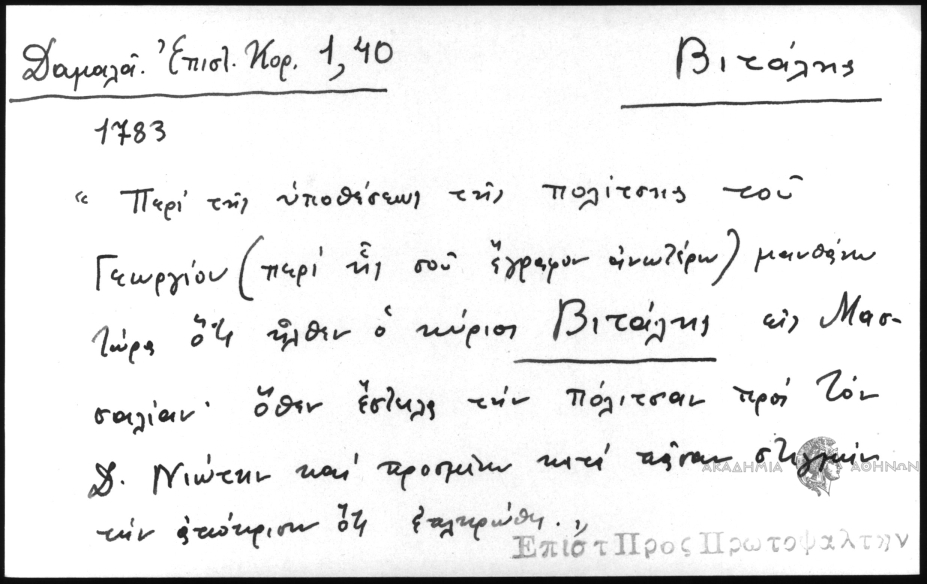 Δαμαλᾶ. Ἐπιστ. Κορ. 1, 40
Βιτάλης
1783
“ Περὶ τῆς ὑποθέσεως τῆς πολίτσης τοῦ
Γεωργίου (περὶ ἧς σοῦ ἔγραφον ἀνωτέρω) μανθάνω
τώρα ὅτι ἦλθεν ὁ κύριος Βιτάλης εἰς Μασ-
σαλίαν· ὅθεν ἔστειλα τὴν πόλιτσαν πρὸς τὸν
Δ. Νιώτην καὶ προσμένω κατὰ πᾶσαν στιγμὴν
τὴν ἀπόκρισιν ὅτι ἐπληρώθη. „
ΑΚΑΔΗΜΙΑ ΑΘΗΝΩΝ
Επιστ Προς Πρωτοψαλτην